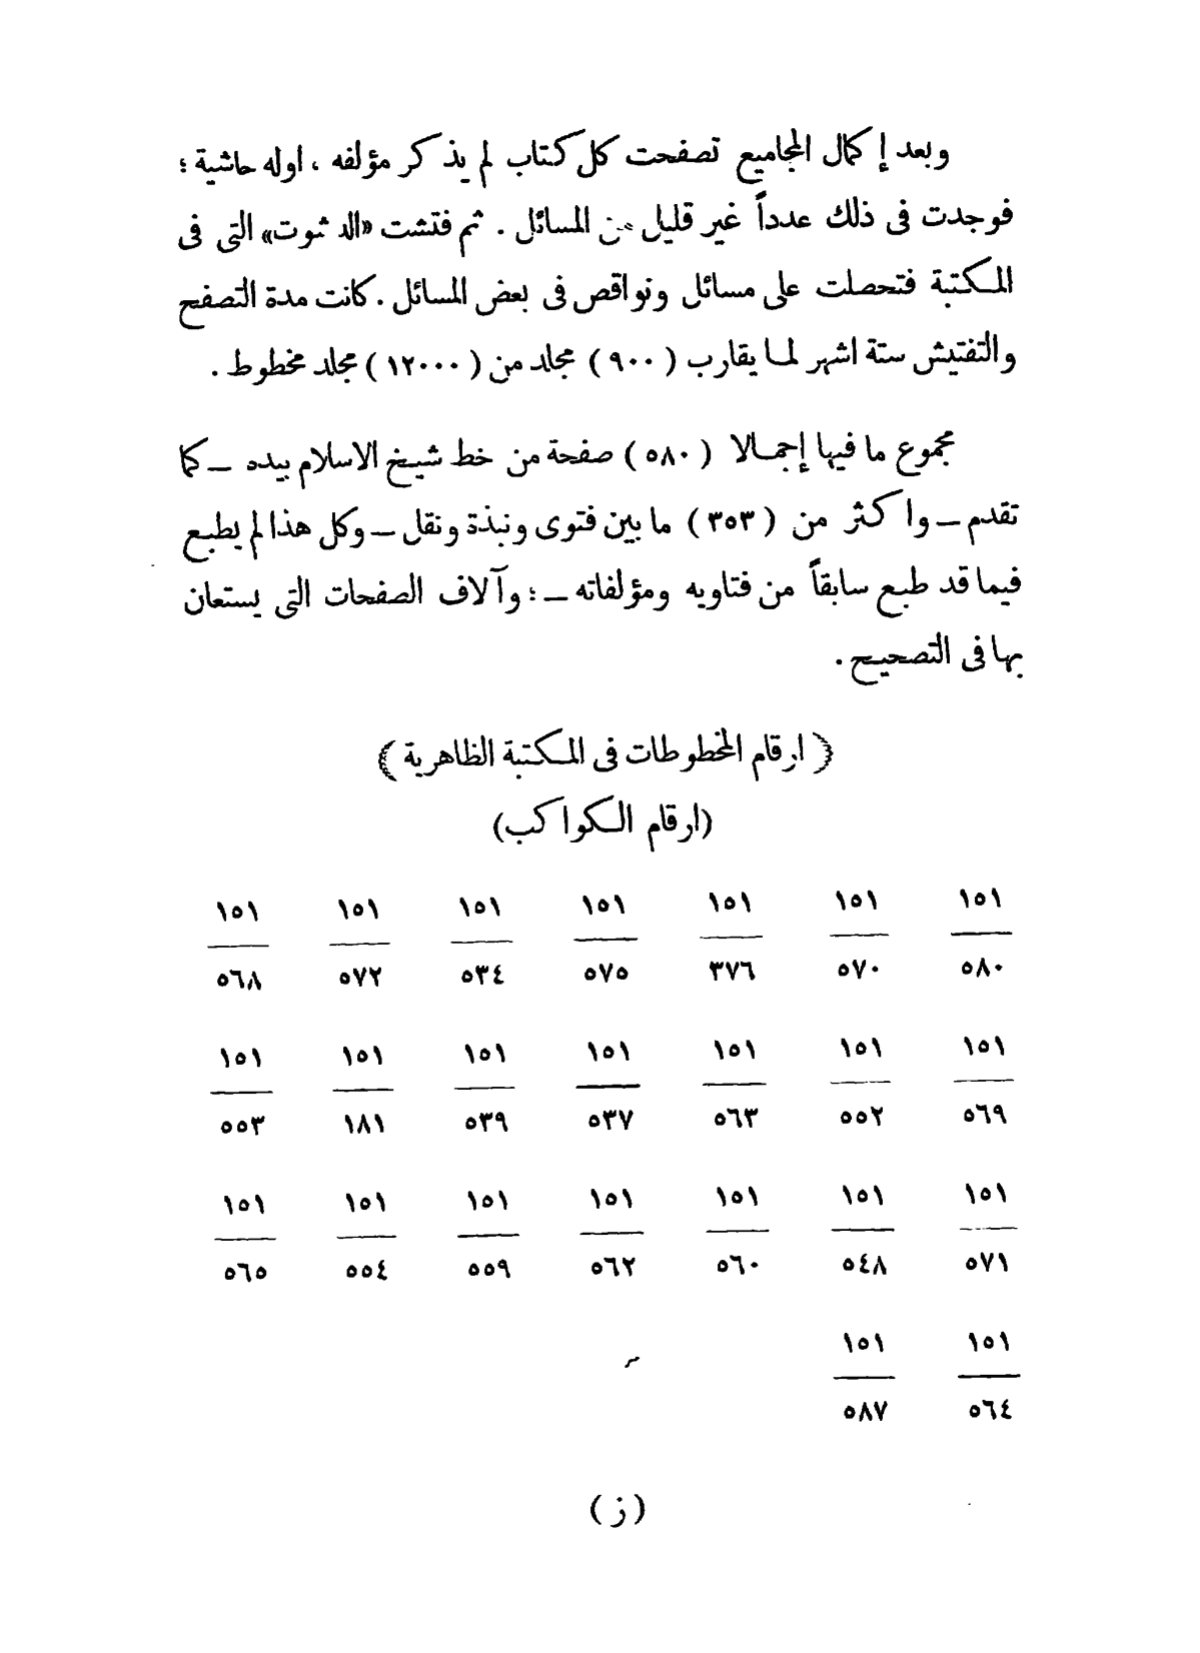 وبعد إكمال المجاميع تصفحت كل كتاب لم يذكر مؤلفه ، اوله حاشية ؛
فوجدت فى ذلك عدداً غير قليل من المسائل . ثم فتشت «الدشوت» التى فى
المكتبة فتحصلت على مسائل ونواقص فى بعض المسائل . كانت مدة التصفح
والتفتيش ستة اشهر لما يقارب ( ٩٠٠ ) مجلد من ( ١٢٠٠٠ ) مجلد مخطوط .
مجموع ما فيها إجمالا ( ٥٨٠ ) صفحة من خط شيخ الاسلام بيده ــ كما
تقدم ــ واكثر من ( ٣٥٣ ) ما بين فتوى ونبذة ونقل ــ وكل هذا لم يطبع
فيما قد طبع سابقاً من فتاويه ومؤلفاته ــ ؛ وآلاف الصفحات التى يستعان
بها فى التصحيح .
( ارقام المخطوطات فى المكتبة الظاهرية )
(ارقام الكواكب)
١٥١ ١٥١ ١٥١ ١٥١ ١٥١ ١٥١ ١٥١
٥٨٠ ٥٧٠ ٣٧٦ ٥٧٥ ٥٣٤ ٥٧٢ ٥٦٨
١٥١ ١٥١ ١٥١ ١٥١ ١٥١ ١٥١ ١٥١
٥٦٩ ٥٥٢ ٥٦٣ ٥٣٧ ٥٣٩ ١٨١ ٥٥٣
١٥١ ١٥١ ١٥١ ١٥١ ١٥١ ١٥١ ١٥١
٥٧١ ٥٤٨ ٥٦٠ ٥٦٢ ٥٥٩ ٥٥٤ ٥٦٥
١٥١ ١٥١
٥٦٤ ٥٨٧
(ز)